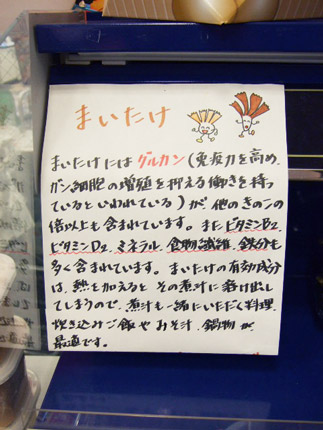 まいたけ
まいたけには グルカン (免疫力を高め、
ガン細胞の増殖を抑える働きを持っ
ているといわれている) が、他のきのこの
倍以上も含まれています。また ビタミンB2、
ビタミンD2、ミネラル、食物繊維、鉄分も
多く含まれています。まいたけの有効成分
は、熱を加えると その煮汁に溶け出し
てしまうので、煮汁も一緒にいただく料理、
炊き込みご飯やみそ汁、鍋物が
最適です。